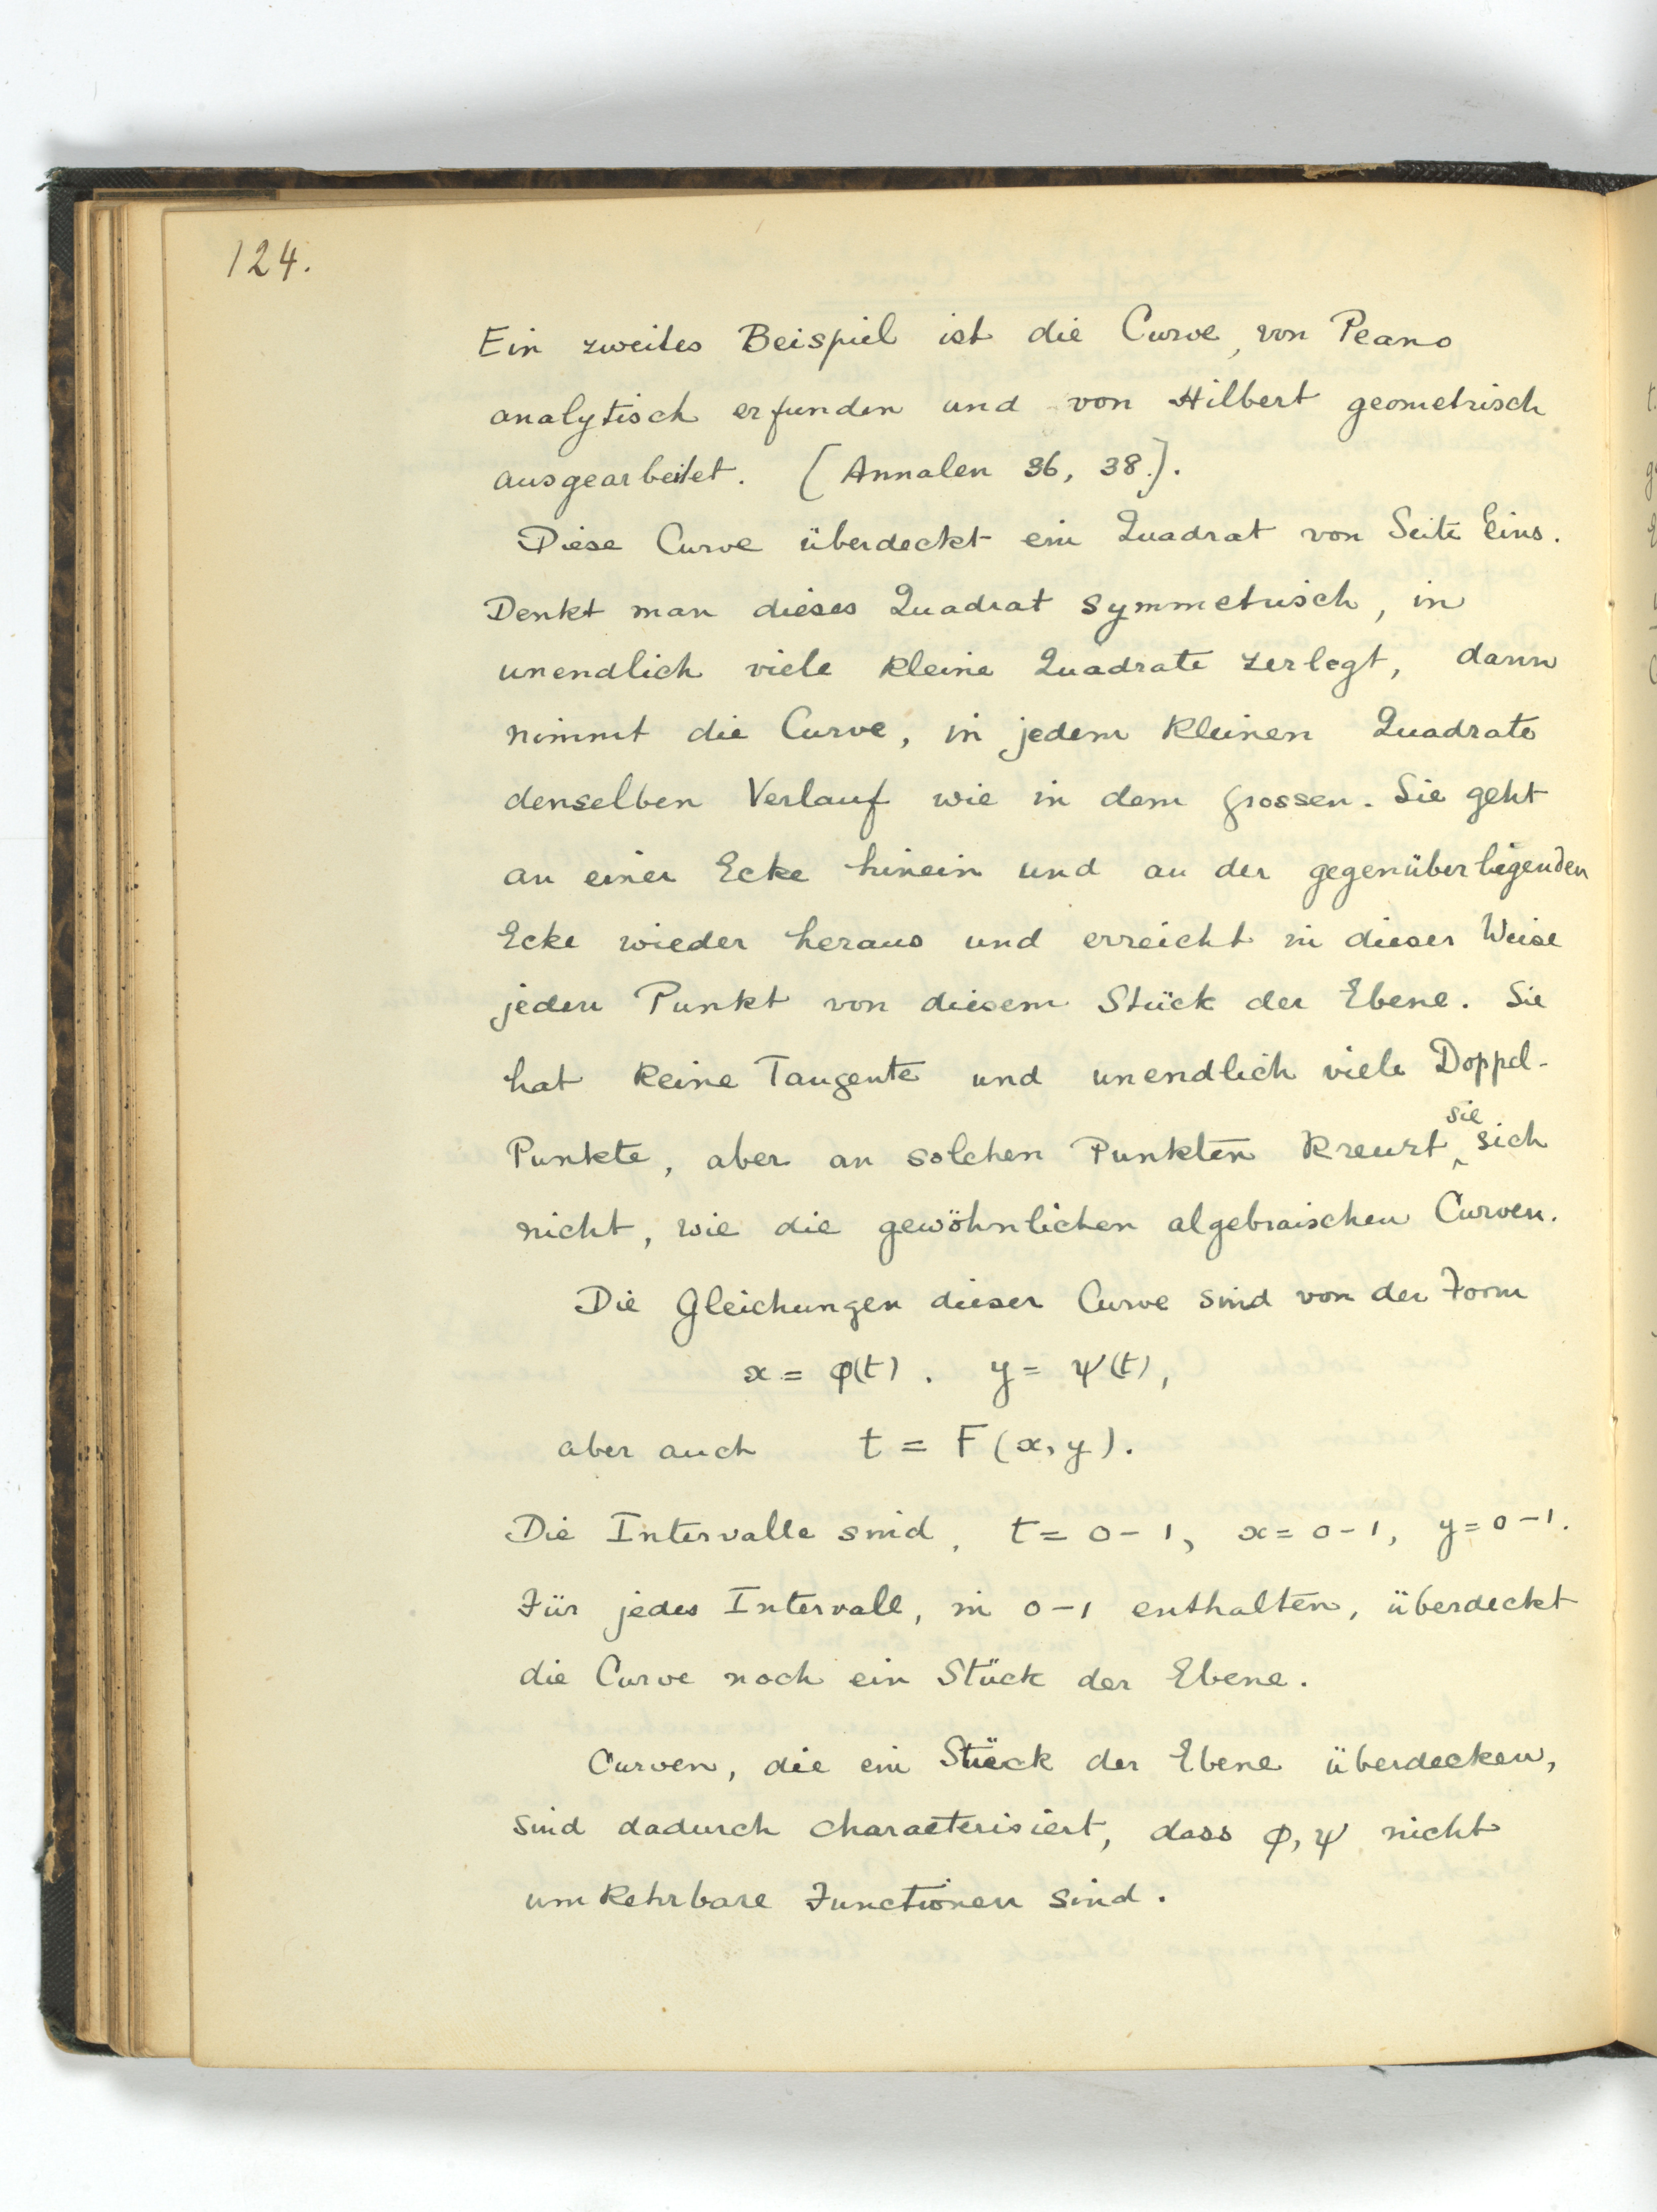 124.
Ein zweites Beispiel ist die Curve, von Peano
analytisch erfunden und von Hilbert geometrisch
ausgearbeitet. [Annalen 36, 38.].
Diese Curve überdeckt ein Quadrat von Seite Eins.
Denkt man dieses Quadrat symmetrisch, in
unendlich viele kleine Quadrate zerlegt, dann
nimmt die Curve, in jedem kleinen Quadrate
denselben Verlauf wie in dem grossen. Sie geht
an einer Ecke hinein und an der gegenüberliegenden
Ecke wieder heraus und erreicht in dieser Weise
jeden Punkt von diesem Stück der Ebene. Sie
hat keine Tangente und unendlich viele Doppel-
Punkte, aber an solchen Punkten kreuzt sie sich
nicht, wie die gewöhnlichen algebraischen Curven.
Die Gleichungen dieser Curve sind von der Form
x = φ(t). y = ψ(t),
aber auch t = F(x, y).
Die Intervalle sind, t = 0-1, x = 0-1, y = 0-1.
Für jedes Intervall, in 0-1 enthalten, überdeckt
die Curve noch ein Stück der Ebene.
Curven, die ein Stück der Ebene überdecken,
sind dadurch characterisiert, dass φ, ψ nicht
umkehrbare Functionen sind.